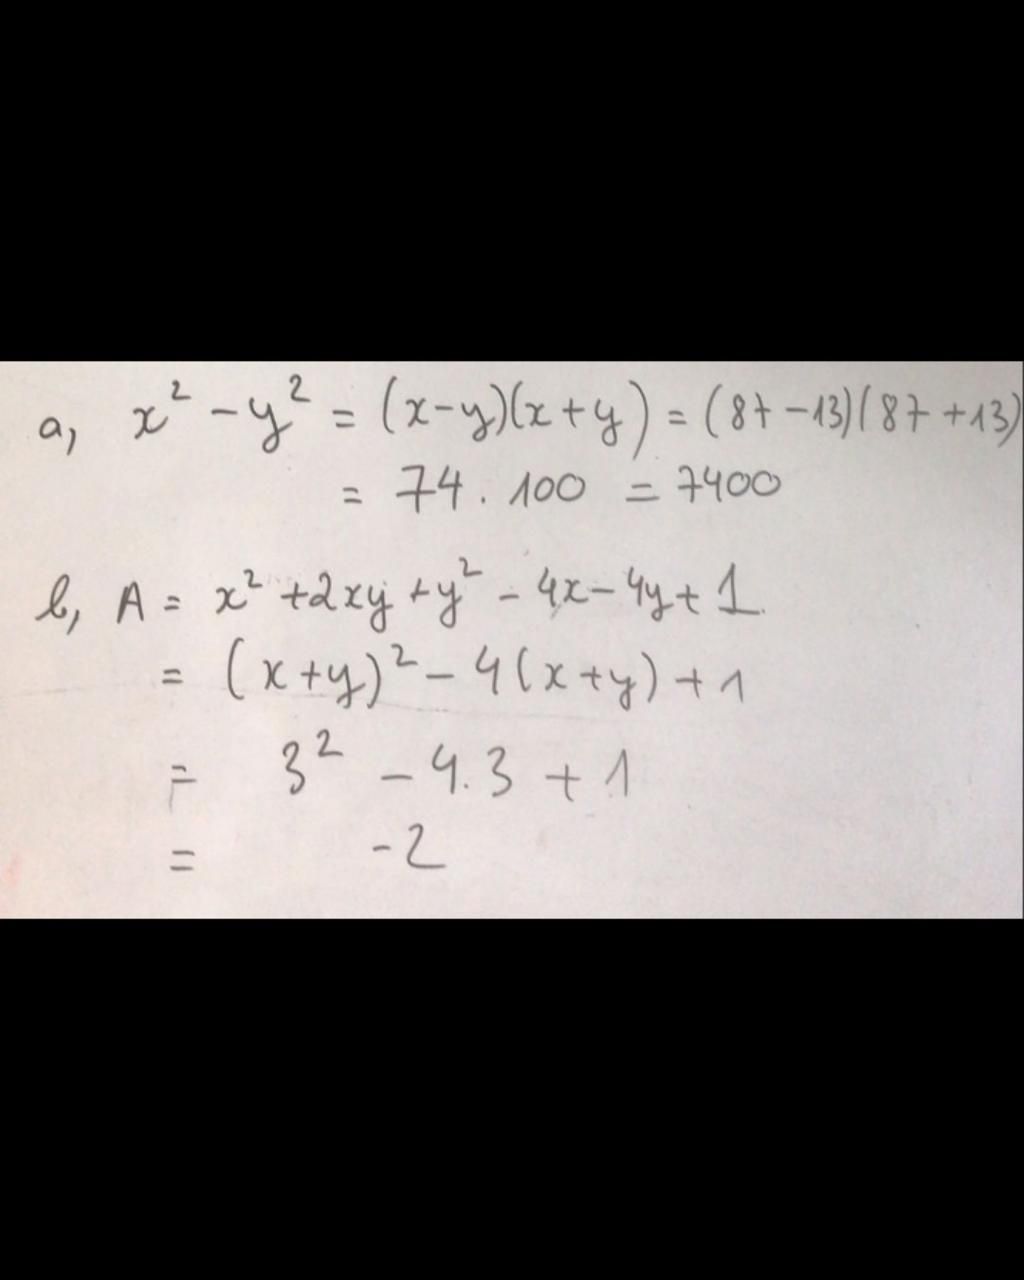 a, x² - y² = (x-y)(x+y) = (87-13)(87+13)
= 74 . 100 = 7400
b, A = x² + 2xy + y² - 4x - 4y + 1
= (x+y)² - 4(x+y) + 1
= 3² - 4.3 + 1
= -2